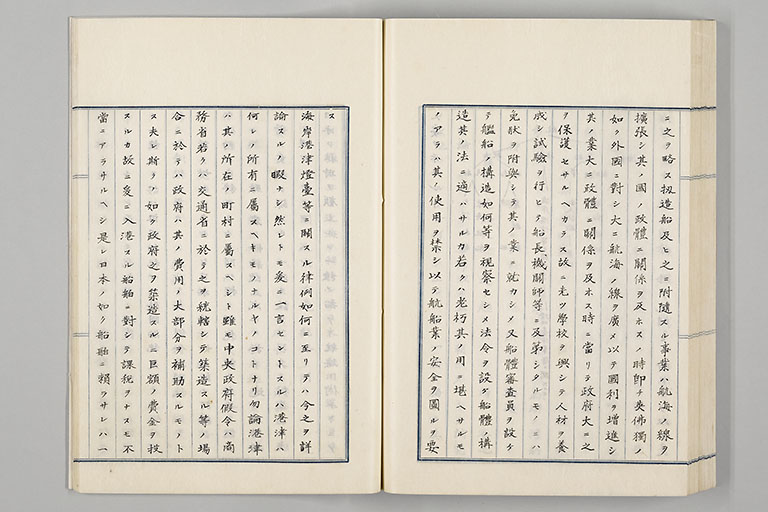 ニ之ヲ略ス扨造船及ヒ之ニ附隨スル事業ハ航海ノ線ヲ
擴張シ其ノ國ノ政體ニ關係ヲ及ホスノ時即チ英佛獨ノ
如ク外國ニ對シ大ニ航海ノ線ヲ廣メ以テ國利ヲ增進シ
其ノ業大ニ政體ニ關係ヲ及ホス時ニ當リテ政府大ニ之
ヲ保護セサルヘカラス故ニ先ツ學校ヲ興シテ人材ヲ養
成シ試驗ヲ行ヒテ船長機關師等ニ及第シタルモノニハ
免狀ヲ附與シテ其ノ業ニ就カシメ又船體審查員ヲ設ケ
テ艦船ノ構造如何等ヲ視察セシメ法令ヲ設ケ船體ノ構
造其ノ法ニ適ハサルカ若クハ老朽其ノ用ニ堪ヘサルモ
ノアラハ其ノ使用ヲ禁シ以テ航船業ノ安全ヲ圖ルヲ要
ス
海岸港津燈臺等ニ關スル律例如何ニ至リテハ今之ヲ詳
論スルノ暇ナシ然レトモ爰ニ一言セントスルハ港津ハ
何レノ所有ニ屬スヘキモノナルヤノコトナリ勿論港津
ハ其ノ所在ノ町村ニ屬スヘシト雖モ中央政府假令ハ商
務省若クハ交通省ニ於テ之ヲ統轄シテ築造スル等ノ場
合ニ於テハ政府ハ其ノ費用ノ大部分ヲ補助スルモノト
ス夫レ斯クノ如ク政府之ヲ築造スルニ巨額ノ費金ヲ投
スルカ故ニ爰ニ入港スル船舶ニ對シテ課稅ヲナスモ不
當ニアラサルヘシ是レ日本ノ如ク船舶ニ賴ラサレハ一